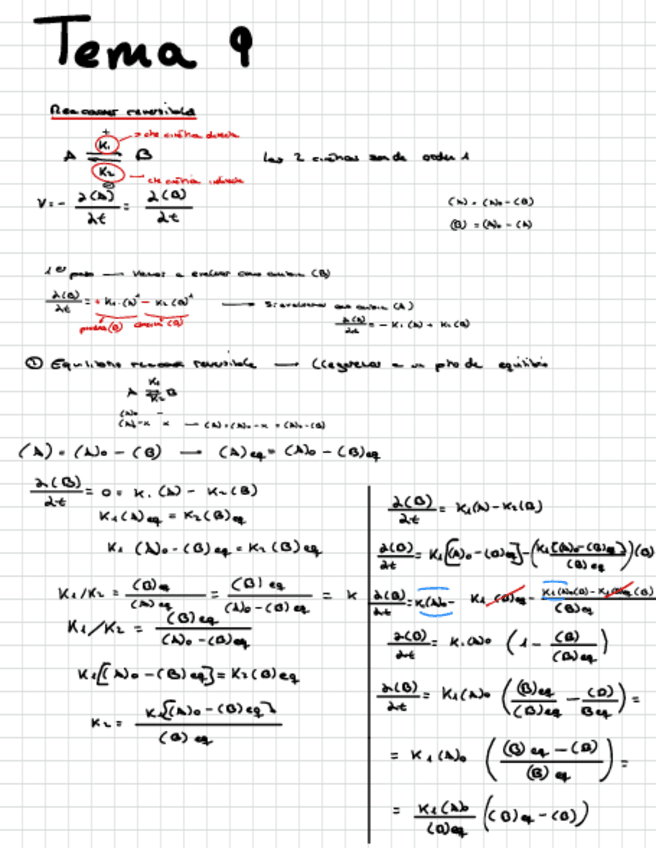 Tema 9
Reacciones reversibles
+
K₁ → cte cinética directa
A ⇌ B    Las 2 cinéticas son de orden 1
K₂ → cte cinética indirecta
V = - ∂(A)/∂t = ∂(B)/∂t
(A) = (A)₀ - (B)
(B) = (A)₀ - (A)
1er paso → Vamos a evaluar como cambia (B)
∂(B)/∂t = + K₁·(A)¹ - K₂(B)¹ → Si evaluamos como cambia (A)
(B) (B)
∂(A)/∂t = - K₁(A) + K₂(B)
① Equilibrio reacción reversible → Llegaremos a un pto de equilibrio
K₁
A ⇌ B
K₂
(A)₀ -
(A)₀-x x → (A) = (A)₀ - x = (A)₀ - (B)
(A) = (A)₀ - (B) → (A)eq = (A)₀ - (B)eq
∂(B)/∂t = 0 = K₁(A) - K₂(B)
K₁(A)eq = K₂(B)eq
K₁ (A)₀ - (B)eq = K₂(B)eq
K₁/K₂ = (B)eq/(A)eq = (B)eq/((A)₀ - (B)eq) = K
K₁/K₂ = (B)eq/((A)₀ - (B)eq)
K₁[(A)₀ - (B)eq] = K₂(B)eq
K₂ = K₁[(A)₀ - (B)eq]/(B)eq
∂(B)/∂t = K₁(A) - K₂(B)
∂(B)/∂t = K₁[(A)₀ - (B)eq] - (K₁[(A)₀ - (B)eq]/(B)eq)(B)
∂(B)/∂t = K₁(A)₀ - K₁(B)eq - (K₁(A)₀(B) - K₁(B)eq(B))/(B)eq
∂(B)/∂t = K₁(A)₀ (1 - (B)/(B)eq)
∂(B)/∂t = K₁(A)₀ ((B)eq/(B)eq - (B)/Beq) =
= K₁(A)₀ (((B)eq - (B))/(B)eq) =
= K₁(A)₀/(B)eq ((B)eq - (B))